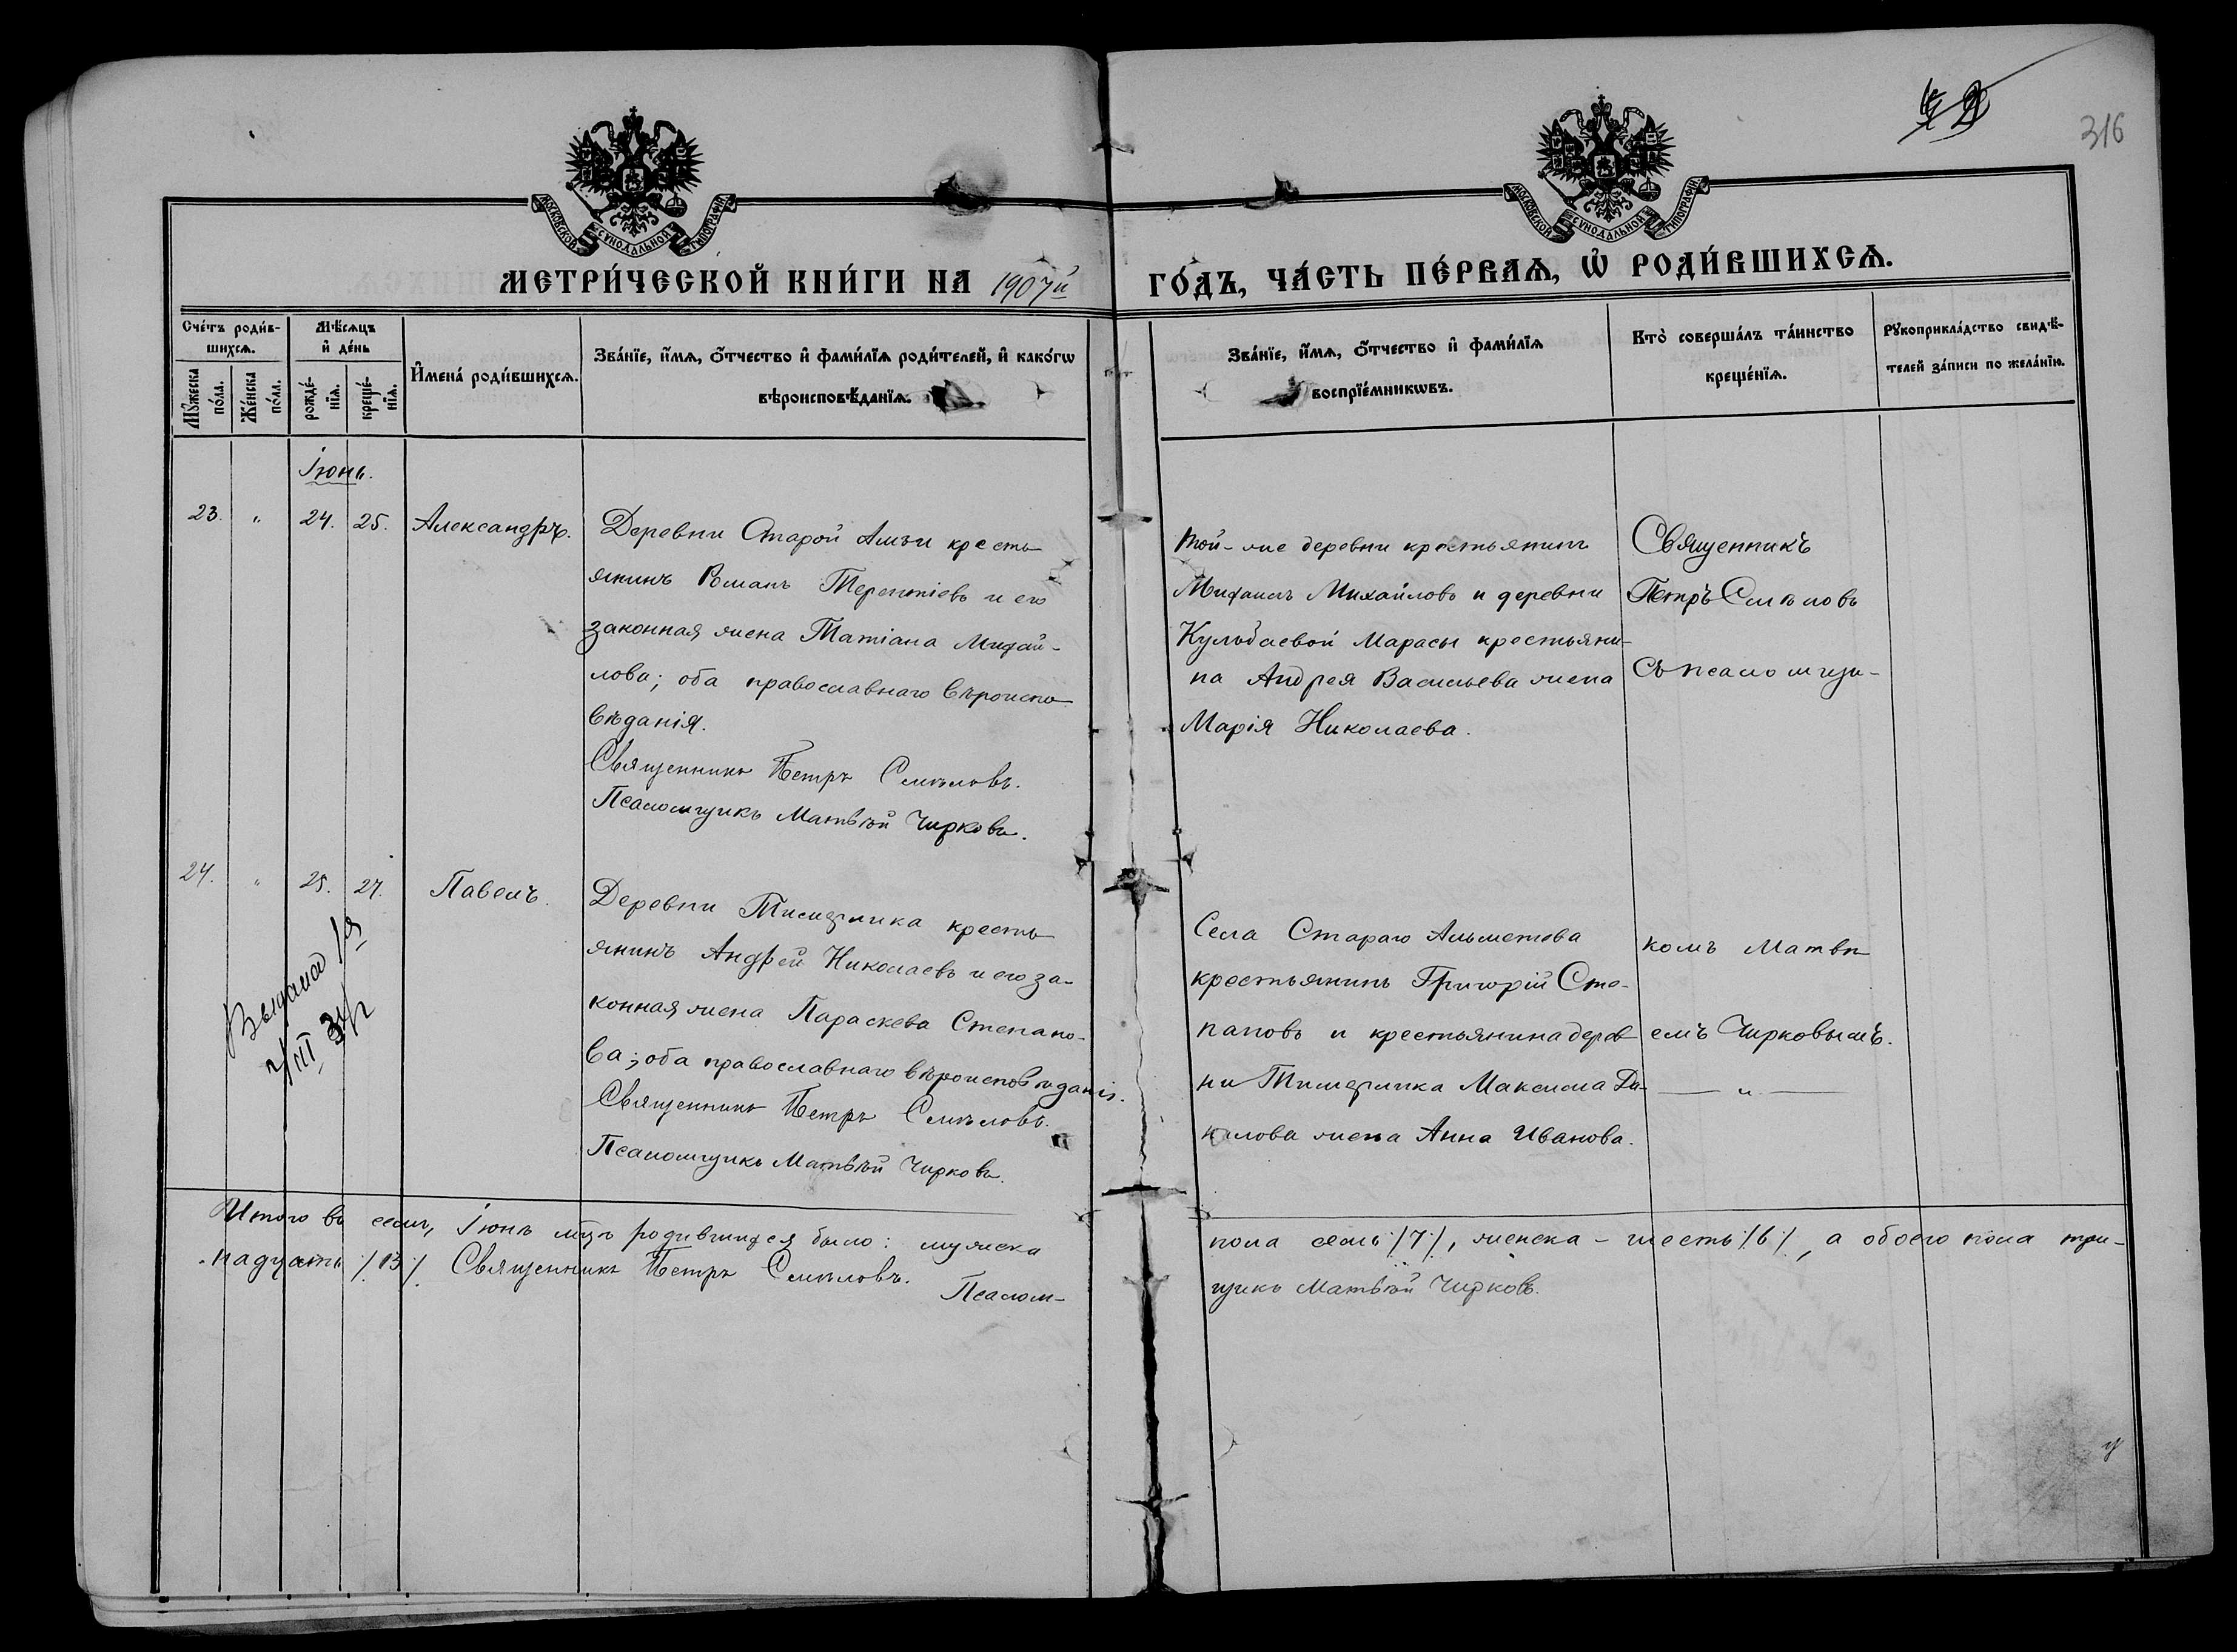 42
316
МОСКОВСКОЙ СѴНОДАЛЬНОЙ ТИПОГРАФІИ
МОСКОВСКОЙ СѴНОДАЛЬНОЙ ТИПОГРАФІИ
МЕТРИ́ЧЕСКОЙ КНИ́ГИ НА 1907й ГО́ДЪ, ЧА́СТЬ ПЕ́РВАѦ, Ѡ҆ РОДИ́ВШИХСѦ.
Сче́тъ роди́в-
шихсѧ.
Мꙋ́жеска
по́ла.
Же́нска
по́ла.
Мѣ́сѧцъ
и҆ де́нь
рожде́-
нїѧ.
креще́-
нїѧ.
И҆мена́ роди́вшихсѧ.
Зва́нїе, и҆́мѧ, ѻ҆́тчество и҆ фами́лїѧ роди́телей, и҆ како́гѡ
вѣроисповѣ́данїѧ.
Зва́нїе, и҆́мѧ, ѻ҆́тчество и҆ фами́лїѧ
воспрїе́мникѡвъ.
Кто̀ соверша́лъ та́инство
креще́нїѧ.
Рꙋкоприкла́дство свидѣ́-
телей за́писи по жела́нїю.
Іюнь.
23. " 24. 25. Александръ.
Деревни Старой Амзи кресть
янинъ Романъ Терентіевъ и его
законная жена Татіана Михай-
лова; оба православнаго вѣроиспо
вѣданія.
Священникъ Петръ Смѣловъ.
Псаломщикъ Матвѣй Чирковъ.
Той-же деревни крестьянинъ
Михаилъ Михайловъ и деревни
Кульбаевой Марасы крестьяни-
на Андрея Васильева жена
Марія Николаева.
Священникъ
Петръ Смѣловъ
съ псаломщи-
24. " 25. 27. Павелъ.
Выдана
III
Деревни кресть
янинъ Андрей Николаевъ и его за-
конная жена Параскева Степано-
ва; оба православнаго вѣроисповѣданія.
Священникъ Петръ Смѣловъ.
Псаломщикъ Матвѣй Чирковъ.
Села Стараго Альметева
крестьянинъ Григорій Сте-
пановъ и крестьянина дерев
ни Максима Да-
нилова жена Анна Иванова.
комъ Матвѣ
емъ Чирковымъ.
— " —
Итого въ семъ, Іюнь мцъ родившихся было: мужеска пола семь /7/, женска - шесть /6/, а обоего пола три-
надцать /13/ Священникъ Петръ Смѣловъ. Псалом-
щикъ Матвѣй Чирковъ.